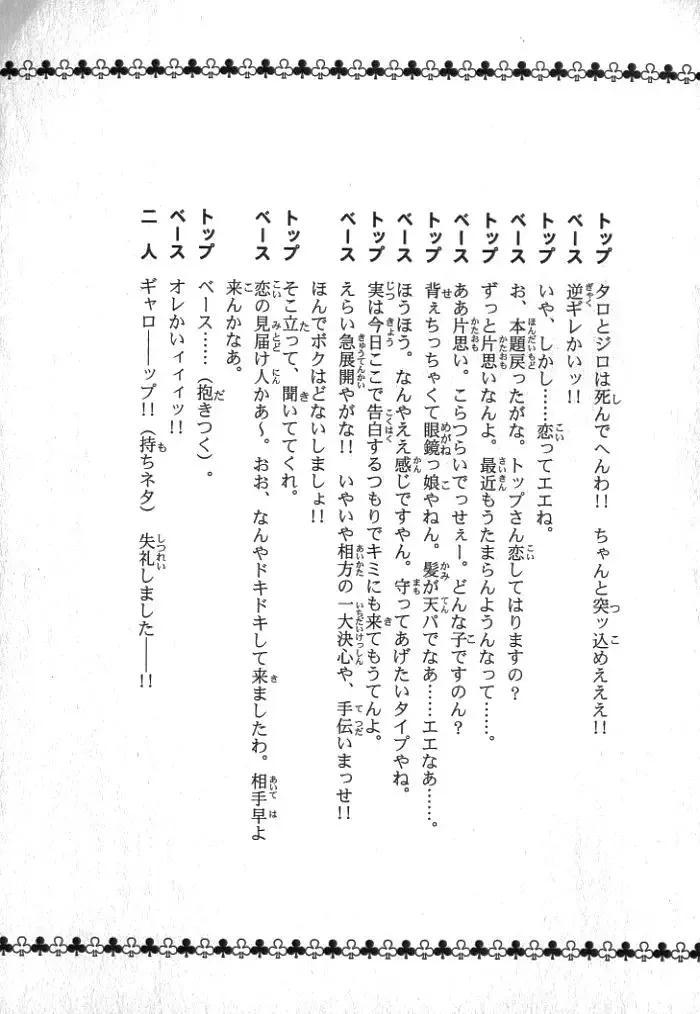 トップ　タロとジロは死んでへんわ!!　ちゃんと突ッ込めえええ!!
ベース　逆ギレかいッ!!
トップ　いや、しかし……恋ってエエね。
ベース　お、本題戻ったがな。トップさん恋してはりますの？
トップ　ずっと片思いなんよ。最近もうたまらんようんなって……。
ベース　ああ片思い。こらつらいでっせぇー。どんな子ですのん？
トップ　背ぇちっちゃくて眼鏡っ娘やねん。髪が天パでなぁ……エエなぁ……。
ベース　ほうほう。なんやええ感じですやん。守ってあげたいタイプやね。
トップ　実は今日ここで告白するつもりでキミにも来てもうてんよ。
ベース　えらい急展開やがな!!　いやいや相方の一大決心や、手伝いまっせ!!
ほんでボクはどないしましょ!!
トップ　そこ立って、聞いててくれ。
ベース　恋の見届け人かぁ〜。おお、なんやドキドキして来ましたわ。相手早よ
来んかなぁ。
トップ　ベース……（抱きつく）。
ベース　オレかいィィィッ!!
二　人　ギャロ――ップ!!（持ちネタ）　失礼しました――!!